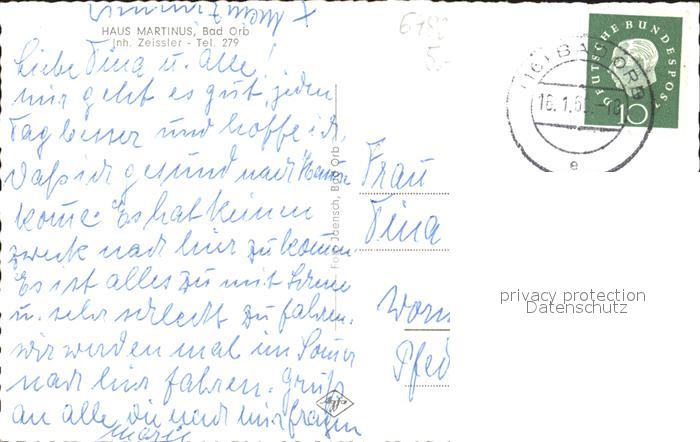 x Mein Zimmer
HAUS MARTINUS, Bad Orb
Inh. Zeissler - Tel. 279
Liebe Tina u. Alle!
mir geht es gut, jeden
Tag besser und hoffe ich,
daß ich gesund nach Hause
kome. Es hat keinen
zweck nach hier zu kommen.
Es ist alles zu mit Schnee
u. sehr schlecht zu fahren.
wir werden mal im Somer
nach hier fahren. Grüße
an alle, die nach mir fragen
Marie
Foto Jaensch, Bad Orb
Frau
Tina
Worm
Pfed
6182
5,-
(16) BAD ORB
16. 1. 6 -18
e
DEUTSCHE BUNDESPOST
10
privacy protection
Datenschutz